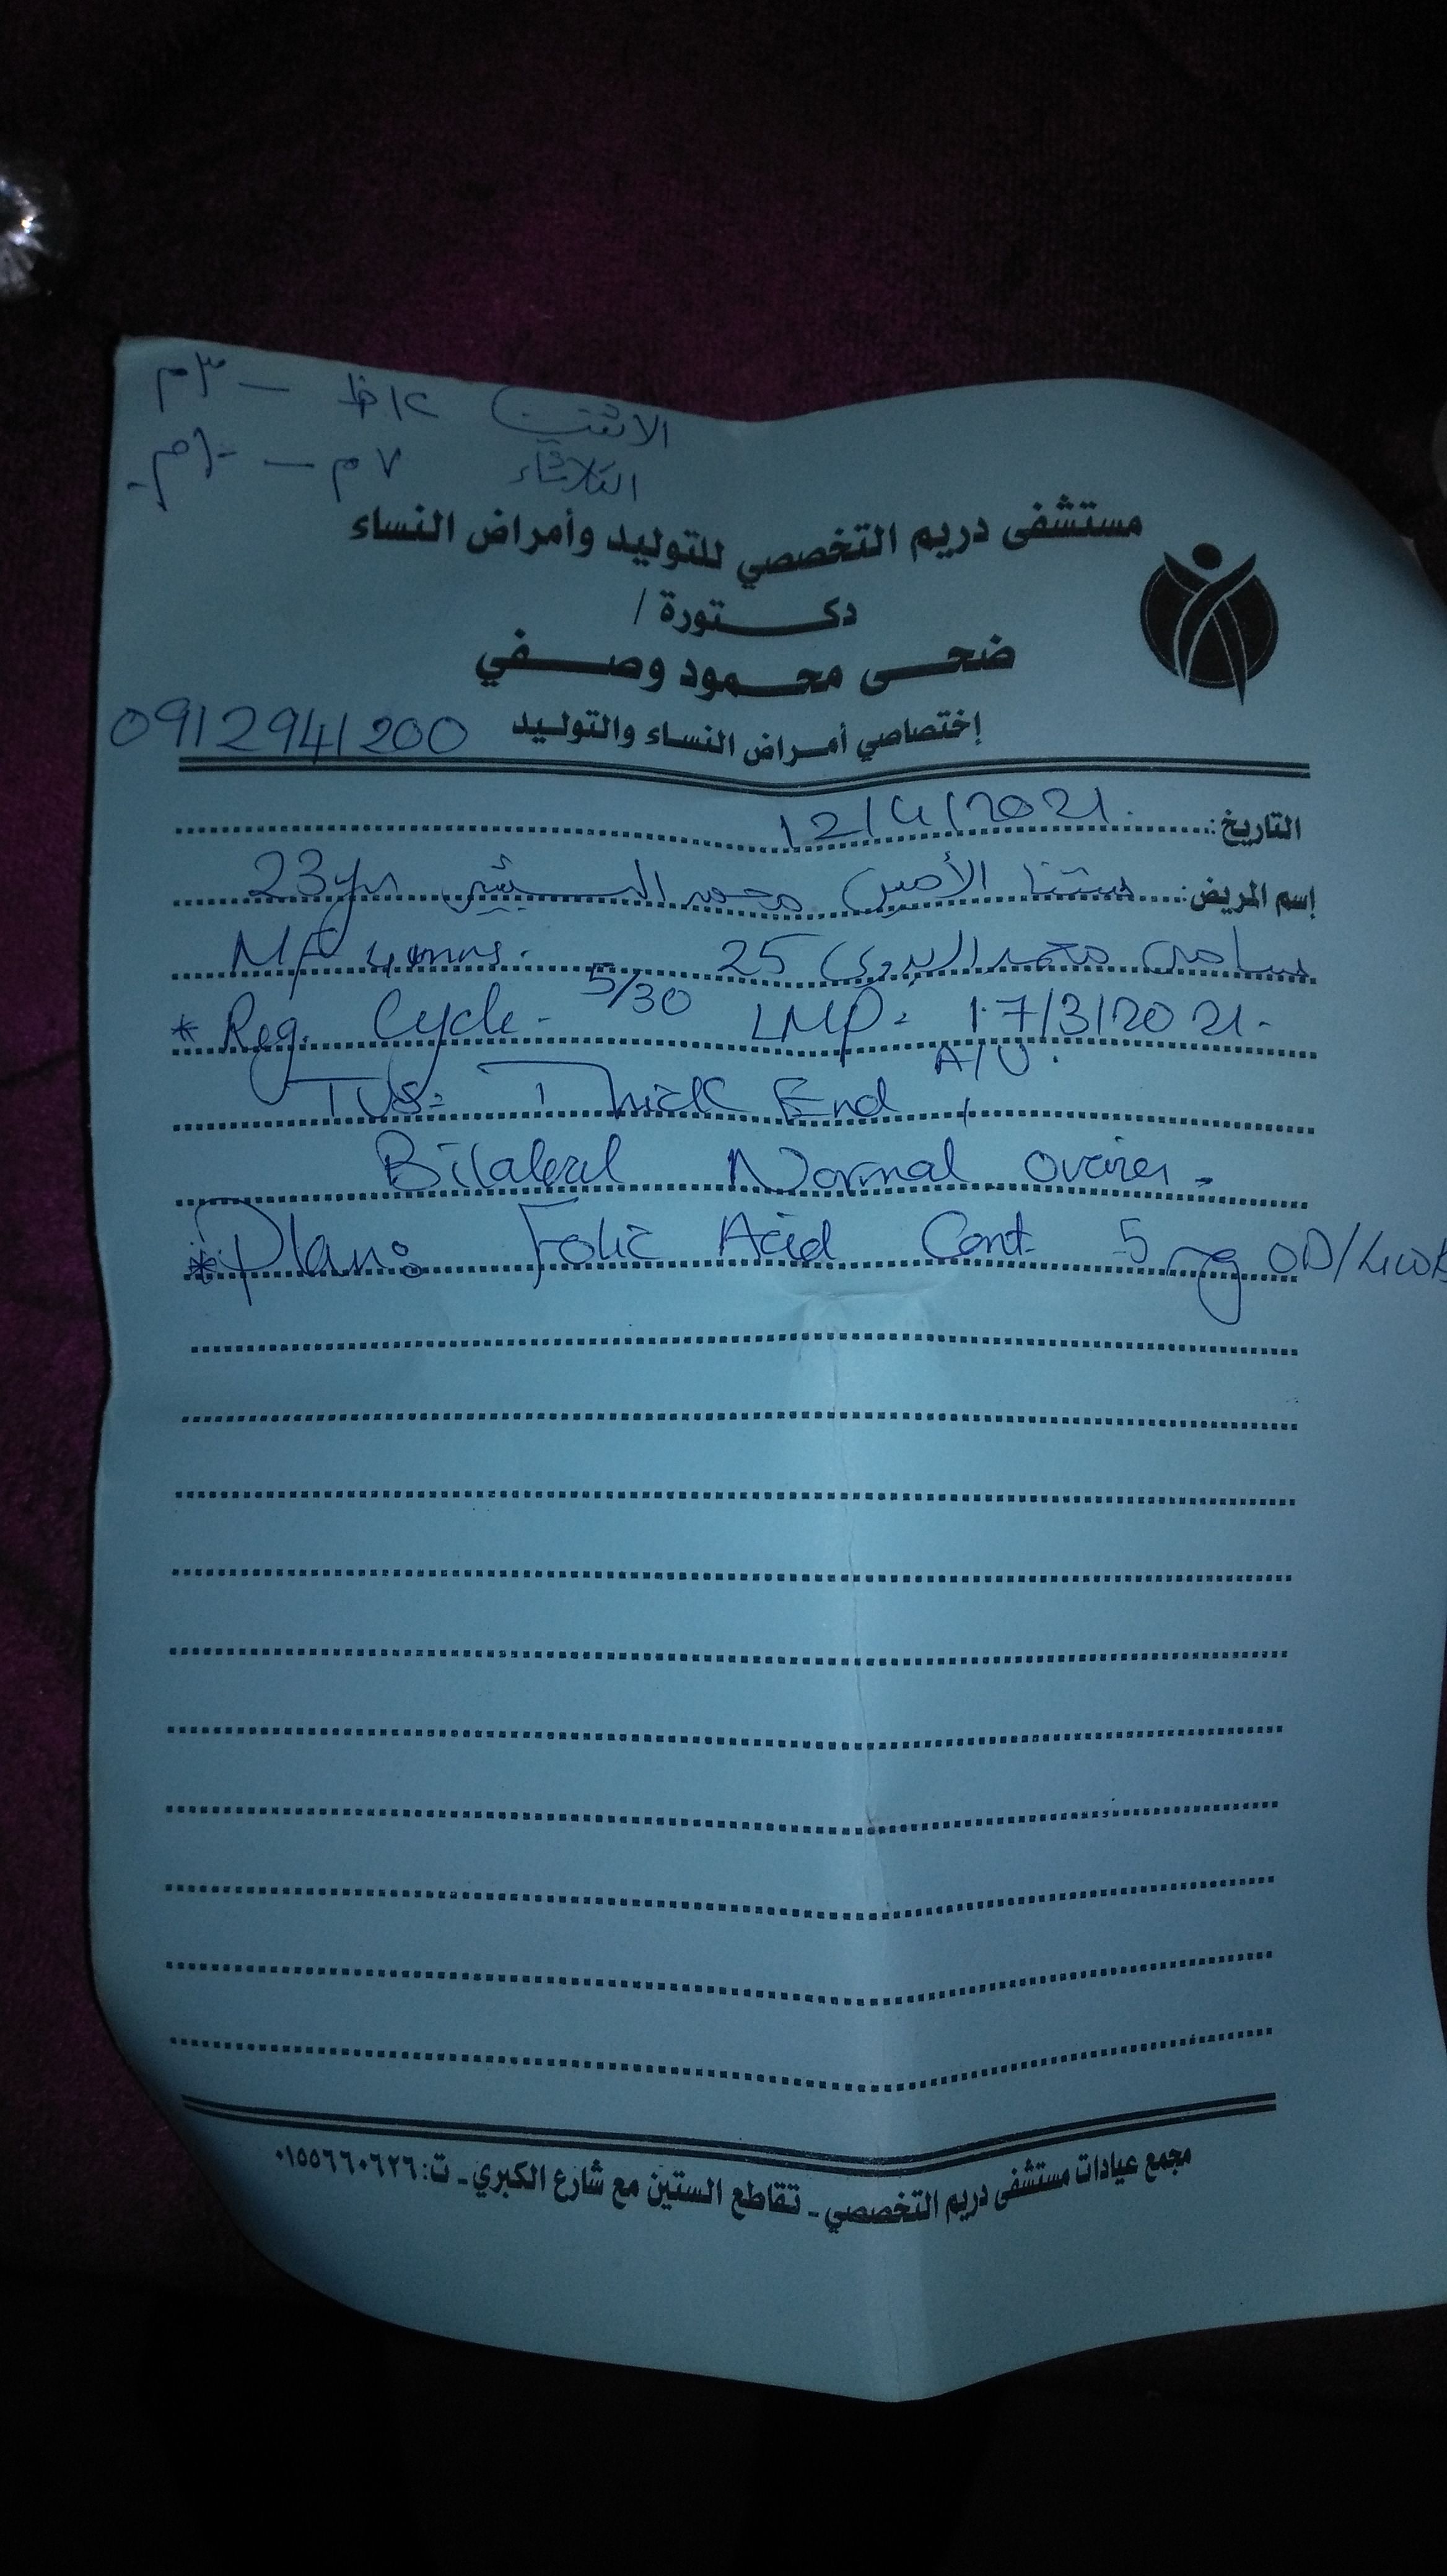 الاثنين ١٢ظ — ٣م
الثلاثاء ٧م — ١٠م
مستشفى دريم التخصصي للتوليد وأمراض النساء
دكـتورة /
ضحى محمود وصفي
إختصاصي أمراض النساء والتوليد
0912941200
التاريخ: 12/4/2021
إسم المريض: الأمين محمد البشير 23yrs
محمد البدوي 25 M/F 4 mns.
* Reg. Cycle - 5/30 LMP: 17/3/2021
TVS: Thick End, A/U.
Bilateral Normal ovaries.
* Plan: Folic Acid Cont. 5 mg OD/4wk
مجمع عيادات مستشفى دريم التخصصي - تقاطع الستين مع شارع الكبري - ت: ٠١٥٥٦٦٠٦٢٦